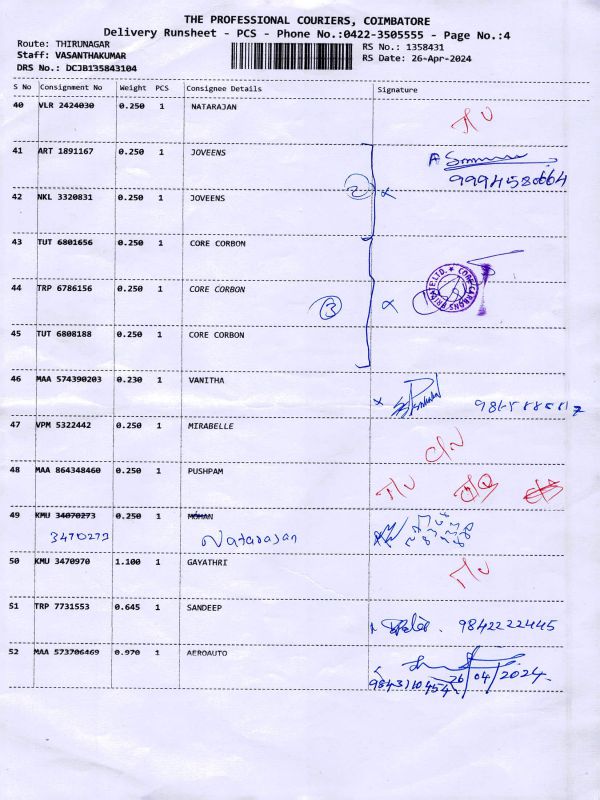 THE PROFESSIONAL COURIERS, COIMBATORE
Delivery Runsheet - PCS - Phone No.:0422-3505555 - Page No.:4
Route: THIRUNAGAR
Staff: VASANTHAKUMAR
DRS No.: DCJB135843104
RS No.: 1358431
RS Date: 26-Apr-2024
S No Consignment No Weight PCS Consignee Details Signature
40 VLR 2424030 0.250 1 NATARAJAN
41 ART 1891167 0.250 1 JOVEENS
42 NKL 3320831 0.250 1 JOVEENS
2
43 TUT 6801656 0.250 1 CORE CORBON
44 TRP 6786156 0.250 1 CORE CORBON
3
45 TUT 6808188 0.250 1 CORE CORBON
46 MAA 574390203 0.230 1 VANITHA
47 VPM 5322442 0.250 1 MIRABELLE
48 MAA 864348460 0.250 1 PUSHPAM
49 KMU 34070273 0.250 1 MOHAN
3470273 Natarajan
50 KMU 3470970 1.100 1 GAYATHRI
51 TRP 7731553 0.645 1 SANDEEP
9842222445
52 MAA 573706469 0.970 1 AEROAUTO
9843110454 26/04/2024